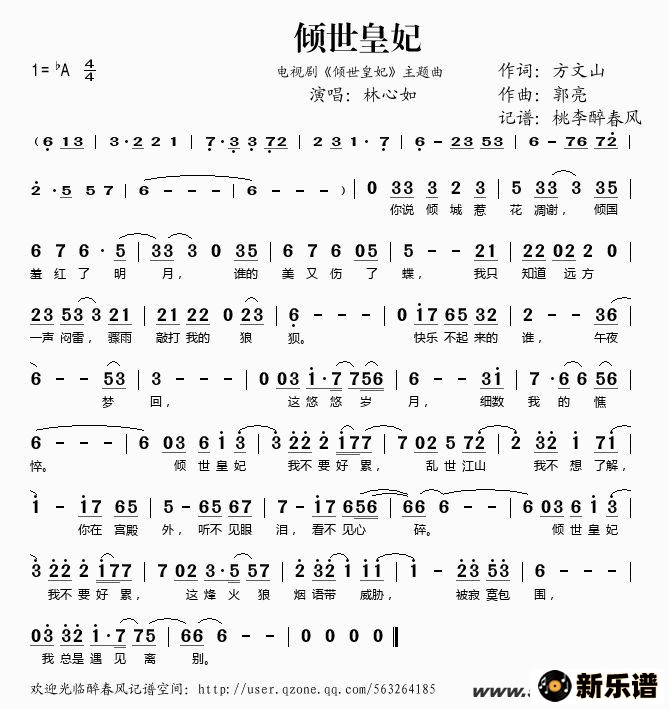 倾世皇妃
1=♭A 4/4
电视剧《倾世皇妃》主题曲
作词：方文山
演唱：林心如
作曲：郭亮
记谱：桃李醉春风
( 6 1 3 3 · 2 2 1 | 7 · 3 3 7 2 | 2 3 1 · 7 | 6 - 2 3 5 3 | 6 - 7 6 7 2 |
2 · 5 5 7 | 6 - - - | 6 - - - ) | 0 3 3 3 2 3 | 5 3 3 3 3 5 |
你说 倾 城 惹 花 凋谢， 倾国
6 7 6 · 5 | 3 3 3 0 3 5 | 6 7 6 0 5 | 5 - - 2 1 | 2 2 0 2 2 0 |
羞 红 了 明 月， 谁的 美 又 伤 了 蝶， 我只 知道 远方
2 3 5 3 3 2 1 | 2 1 2 2 0 2 3 | 7 - - - | 0 1 7 6 5 3 2 | 2 - - 3 6 |
一声 闷雷， 骤雨 敲打 我的 狼 狈。 快乐 不起 来的 谁， 午夜
6 - - 5 3 | 3 - - - | 0 0 3 1 · 7 7 5 6 | 6 - - 3 1 | 7 · 6 6 5 6 |
梦 回， 这 悠 悠 岁 月， 细数 我 的 憔
6 - - - | 6 0 3 6 1 3 | 3 2 2 2 1 7 7 | 7 0 2 5 7 2 | 2 3 2 1 7 1 |
悴。 倾 世 皇 妃 我 不 要 好 累， 乱 世 江山 我 不 想 了解，
1 - 1 7 6 5 | 5 - 6 5 6 7 | 7 - 1 7 6 5 6 | 6 6 6 - - | 6 0 3 6 1 3 |
你在 宫殿 外， 听不 见眼 泪， 看不 见心 碎。 倾 世 皇 妃
3 2 2 2 1 7 7 | 7 0 2 3 · 5 5 7 | 2 3 2 1 1 1 | 1 - 2 3 5 3 | 6 - - - |
我 不 要 好 累， 这 烽 火 狼 烟 语带 威胁， 被寂 寞包 围，
0 3 3 2 1 · 7 7 5 | 6 6 6 - - | 0 0 0 0 ‖
我 总是 遇 见 离 别。
欢迎光临醉春风记谱空间：http://user.qzone.qq.com/563264185
www.
新乐谱